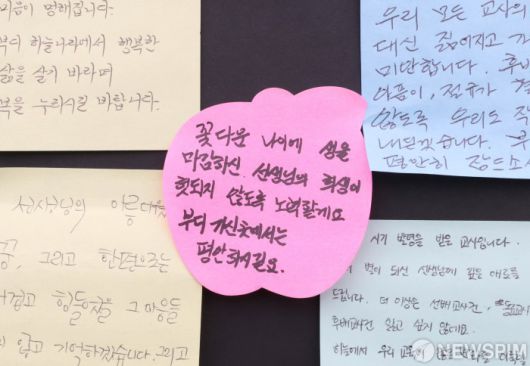 명해집니다.
부디 하늘나라에서 행복한
삶을 살기 바라며
복을 누리시길 바랍니다.
우리 모든 교사의
대신 짊어지고
미안합니다. 후배
아픔이, 절규가
않도록 우리도 작
내딛겠습니다.
평안히 잠드소서
꽃다운 나이에 생을
마감하신 선생님의 희생이
헛되지 않도록 노력할게요
부디 가신 곳에서는
평안하시길요.
선생님의 아름다웠
그리고 한편으로는
힘들었을 그 마음들
않고 기억하겠습니다. 그리고
시기 발령을 받은 교사입니다.
별이 되신 선생님께 깊은 애도를
드립니다. 더 이상은 선배교사건,
후배교사건 잃고 싶지 않네요.
하늘에서 우리
NEWSPIM